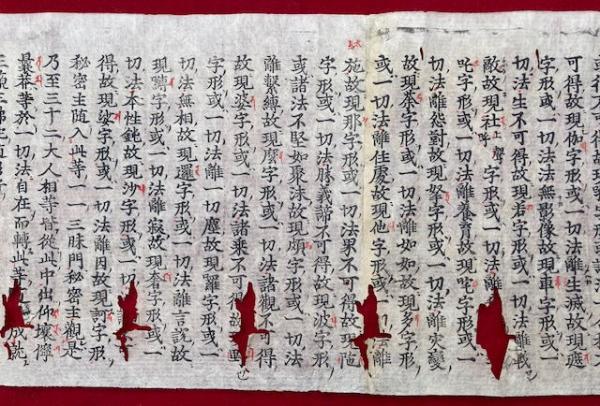 可得故現伽字形或一切法離生滅故現遮
字形或一切法無影像故現車字形或一
切法生不可得故現若字形或一切法離戰
敵故現社上聲字形或一切法離
吒字形或一切法離養育故現
切法離怨對故現拏字形或一切法離災變
故現荼字形或一切法離如如故現多字形
或一切法離住處故現他字形或一切法離
施故現那字形或一切法界不可得故現陀
字形或一切法勝義諦不可得故現波字形
或諸法不堅如聚沫故現頗字形或一切法
離繫縛故現麼字形或一切法諸觀不可得
故現婆字形或一切法諸乘不可得故
字形或一切法離一切塵故現羅字形或一
切法無相故現邏字形或一切法離言說故
現嚩字形或一切法離寂故現奢字形或一
切法本性鈍故現沙字形或一切
得故現娑字形或一切法離因故現訶字形
秘密主隨入此等一一三昧門秘密主觀是
乃至三十二大人相等皆從此中出仰壤拏
曩莽等於一切法自在而轉此等成就